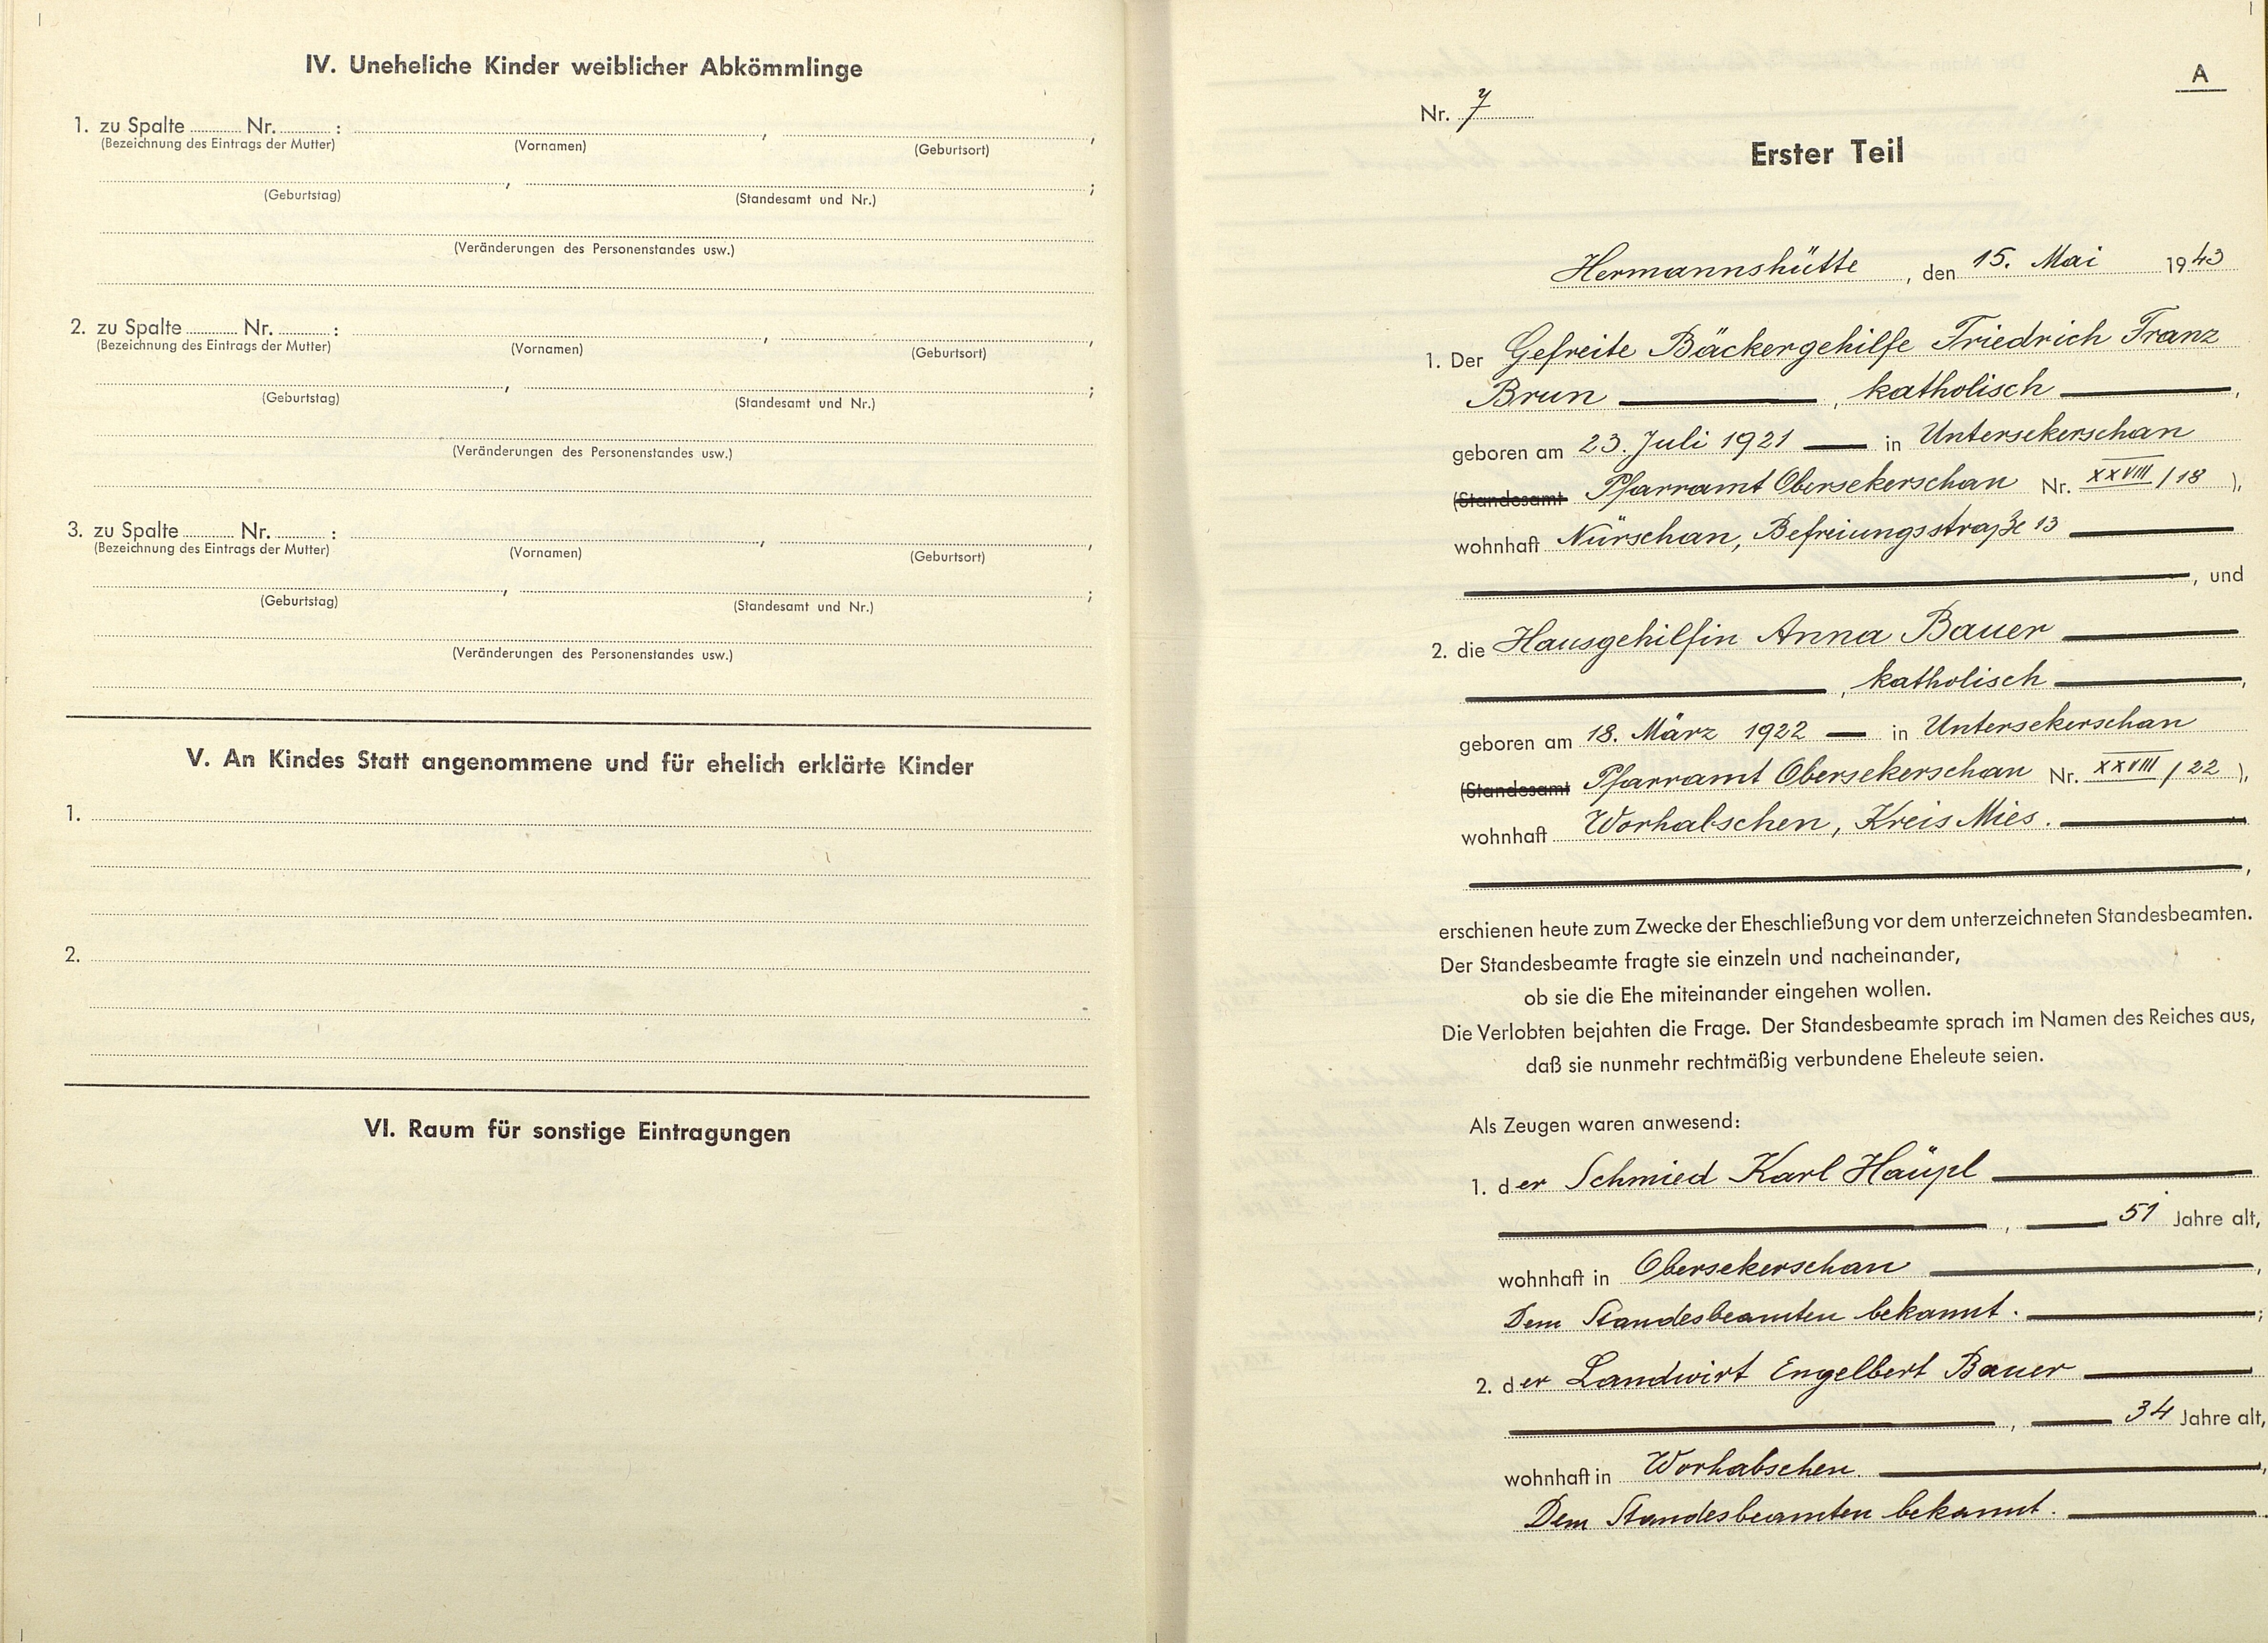 IV. Uneheliche Kinder weiblicher Abkömmlinge
1. zu Spalte ........ Nr. ........ : , ,
(Bezeichnung des Eintrags der Mutter) (Vornamen) (Geburtsort)
, ;
(Geburtstag) (Standesamt und Nr.)
(Veränderungen des Personenstandes usw.)
2. zu Spalte ........ Nr. ........ : , ,
(Bezeichnung des Eintrags der Mutter) (Vornamen) (Geburtsort)
, ;
(Geburtstag) (Standesamt und Nr.)
(Veränderungen des Personenstandes usw.)
3. zu Spalte ........ Nr. ........ : , ,
(Bezeichnung des Eintrags der Mutter) (Vornamen) (Geburtsort)
, ;
(Geburtstag) (Standesamt und Nr.)
(Veränderungen des Personenstandes usw.)
V. An Kindes Statt angenommene und für ehelich erklärte Kinder
1.
2.
VI. Raum für sonstige Eintragungen
A
Nr. 7
Erster Teil
Hermannshütte, den 15. Mai 1943
1. Der Gefreite Bäckergehilfe Friedrich Franz
Brun, katholisch,
geboren am 23. Juli 1921 in Untersekerschan
(Standesamt Pfarramt Obersekerschan Nr. XXVIII / 18 ),
wohnhaft Nürschan, Befreiungsstraße 13
, und
2. die Hausgehilfin Anna Bauer
, katholisch,
geboren am 18. März 1922 in Untersekerschan
(Standesamt Pfarramt Obersekerschan Nr. XXVIII / 22 ),
wohnhaft Worhabschen, Kreis Mies.
,
erschienen heute zum Zwecke der Eheschließung vor dem unterzeichneten Standesbeamten.
Der Standesbeamte fragte sie einzeln und nacheinander,
ob sie die Ehe miteinander eingehen wollen.
Die Verlobten bejahten die Frage. Der Standesbeamte sprach im Namen des Reiches aus,
daß sie nunmehr rechtmäßig verbundene Eheleute seien.
Als Zeugen waren anwesend:
1. der Schmied Karl Häupl
, 51 Jahre alt,
wohnhaft in Obersekerschan,
Dem Standesbeamten bekannt. ;
2. der Landwirt Engelbert Bauer
, 34 Jahre alt,
wohnhaft in Worhabschen.,
Dem Standesbeamten bekannt. .